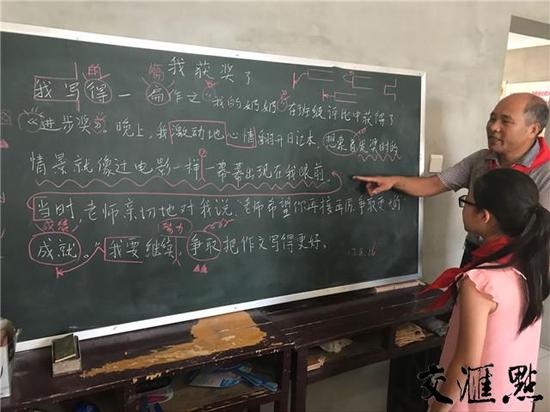 我获奖了
的
篇
我写得一扁作文《我的奶奶》在班级评比中获得了
“进步奖”。晚上,我激动地心情翻开日记本,想象着发奖时的
情景就像过电影一样一幕幕出现在我眼前
当时,老师亲切地对我说:老师希望你再接再厉,争取更大的
成绩
努力
成就。”我要继续,争取把作文写得更好。
17.8.16
交汇點